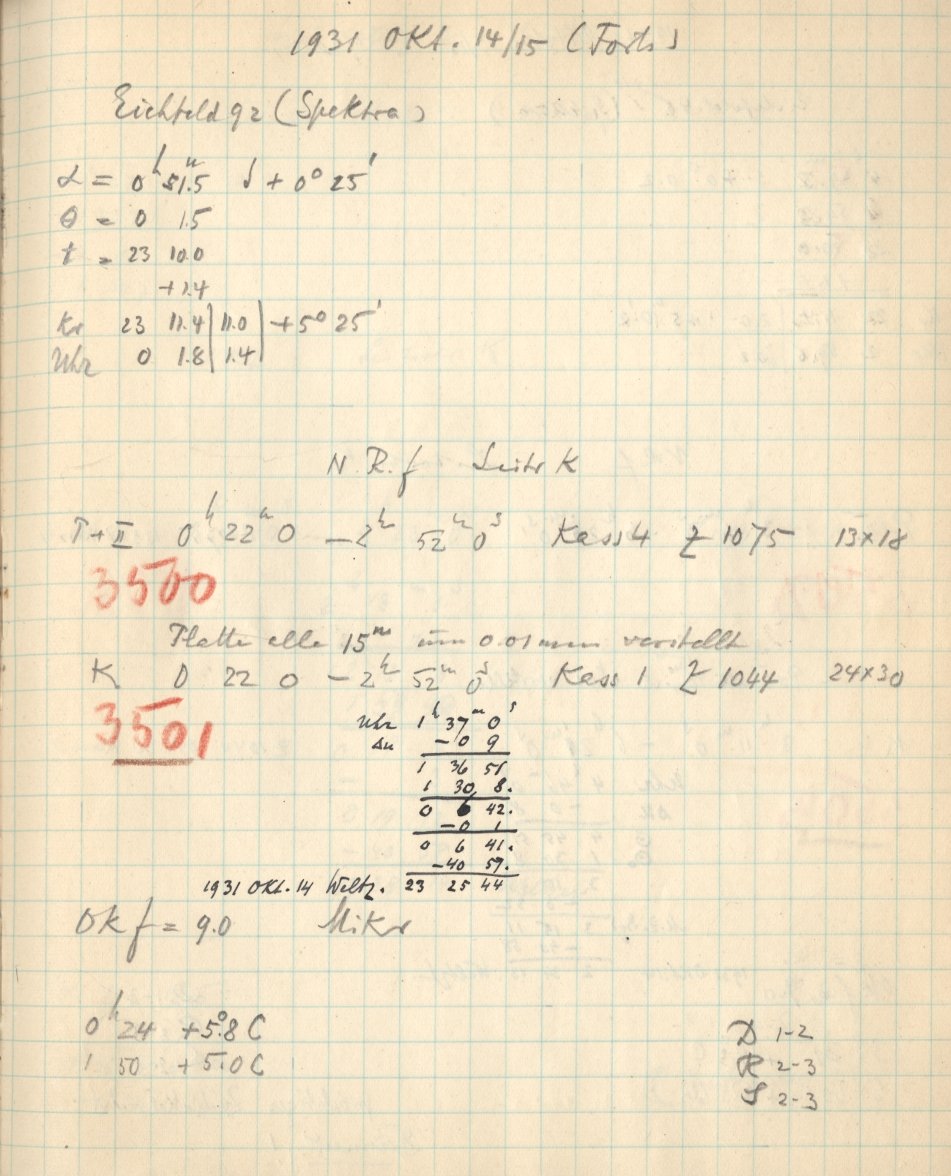 1931 Okt. 14/15 (Forts)
Eichfeld 92 (Spektra)
α = 0ʰ 51ᵐ.5 δ + 0° 25'
θ = 0 1.5
t = 23 10.0
+1.4
Kr 23 11.4 | 11.0 | +5° 25'
Uhr 0 1.8 | 1.4 |
N. R. f Leitr K
T+II 0ʰ 22ᵐ 0 –2ʰ 52ᵐ 0ˢ Kass 4 Z 1075 13×18
3500
Platte alle 15ᵐ um 0.01mm verstellt
K 0 22 0 –2ʰ 52ᵐ 0ˢ Kass 1 Z 1044 24×30
3501
Uhr 1ʰ 37ᵐ 0ˢ
Δu –0 9
1 36 51
1 30 8.
0 6 42.
–0 1
0 6 41.
–40 57.
1931 Okt. 14 Weltz. 23 25 44
Okf = 9.0 Mikr
0ʰ 24 +5°.8 C
1 50 +5.0 C
D 1-2
R 2-3
S 2-3